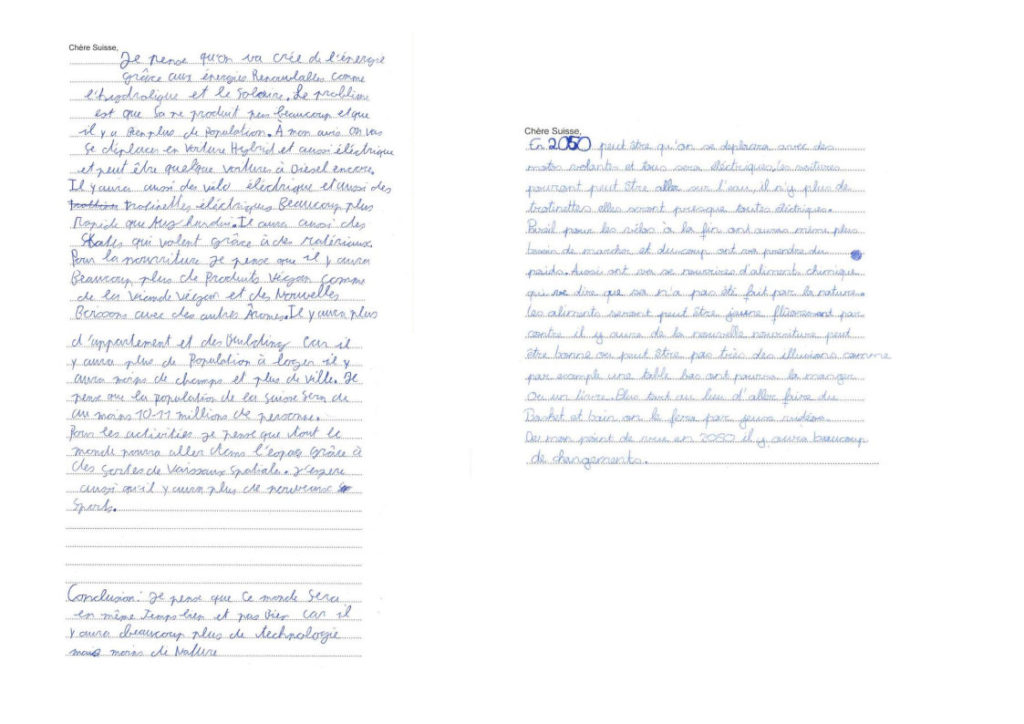 Chère Suisse,
Je pense qu'on va crée de l'énergie
grâce aux énergies Renouvlables comme
l'hydrolique et le Solaire. Le problème
est que sa ne produit pas beaucoup et que
il y a Bien plus de Population. À mon avis on vas
se déplacer en voiture Hybrid et aussi éléctrique
et peut être quelque voitures à Diesel encore.
Il y aura aussi des vélo éléctrique et aussi des
trotinettes éléctriques Beaucoup plus
Rapide que Aujhurdui. Il aura aussi des
Skates qui volent grâce à des Matériaux.
Pour la nourriture je pense que il y aura
Beaucoup plus de Produits Végan comme
de la Viande Végan et des Nouvelles
Boissons avec des autres Arômes. Il y aura plus
d'appartement et des Building Car il
y aura plus de Population à loger il y
aura moins de champs et plus de Ville. Je
pense que la population de la Suisse Sera de
au moins 10-11 millions de personne.
Pour les activities je pense que tout le
monde poura aller dans l'espace grâce à
des Sortes de Vaissaux Spatiale. J'espère
aussi qu'il y aura plus de nouveaux
Sports.
Conclusion: Je pense que Ce monde Sera
en même temps bien et pas Bien car il
y aura beaucoup plus de technologie
mais moins de Nature
Chère Suisse,
En 2050 peut être qu'on se deplacera avec des
motos volantes et tous sera éléctriques, les voitures
pourront peut être aller sur l'eau, il n'y plus de
trotinettes elles seront presque toutes éléctriques.
Pareil pour les vélos à la fin ont aura même plus
besoin de marcher et ducoup ont va prendre du
poids. Aussi ont va se nourrires d'aliments chimique
qui dire que sa n'a pas été fait par la nature.
Les aliments seront peut être jaune fluorescent par
contre il y aura de la nouvelle nourriture peut
être bonne ou peut être pas très des illusions comme
par exemple une table bas ont pourra la manger
Ou un livre. Plus tard au lieu d'aller faire du
Basket et bain on le fera par jeux vidéos.
De mon point de vue en 2050 il y aura beaucoup
de changements.